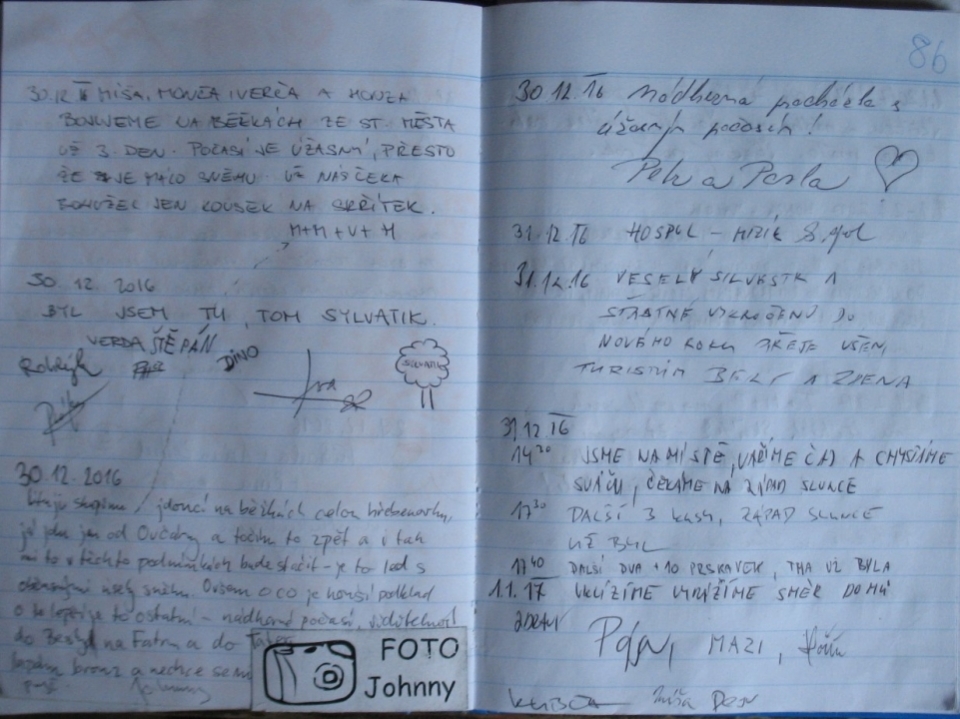 30.12 MÍŠA, MONČA, VERČA A HONZA
BOJUJEME NA BĚŽKÁCH ZE ST. MĚSTA
UŽ 3 DEN. POČASÍ JE ÚŽASNÝ, PŘESTO
ŽE JE MÁLO SNĚHU. UŽ NÁS ČEKÁ
BOHUŽEL JEN KOUSEK NA SKŘÍTEK.
M+M+V+H
30.12.2016
BYL JSEM TU, TOM SYLVATIK.
VERDA ŠTĚPÁN
DINO
30.12.2016
jdoucí na běžkách celou hřebenovku,
já jdu jen od Ovčárny a točím to zpět a v tak
mi to v těchto podmínkách bude stačit - je to led s
občasnými úseky sněhu. Ovšem o co je horší podklad
o to lepší je to ostatní - nádherné počasí, viditelnost
do Beskyd na Fatru a do Tater
a nechce se mi
FOTO
Johnny
86
30.12.16 Nádherná procházka s
úžasným počasím!
Petr a Pavla
31.12.16 HOSPUL -
31.12.16 VESELÝ SILVESTR A
ŠŤASTNÉ VYKROČENÍ DO
NOVÉHO ROKU PŘEJE VŠEM
TURISTŮM A ZDENA
31.12.16
14 20 JSME NA MÍSTĚ, VAŘÍME ČAJ A CHYSTÁME
SVÁČU, ČEKÁME NA ZÁPAD SLUNCE
17 30 DALŠÍ 3 KUSY, ZÁPAD SLUNCE
UŽ BYL
17 40 DALŠÍ DVA + 10 PRSKAVEK, TMA UŽ BYLA
1.1.17 UKLÍZÍME VYRÁŽÍME SMĚR DOMŮ
ZDRAVÍ
MAZI,